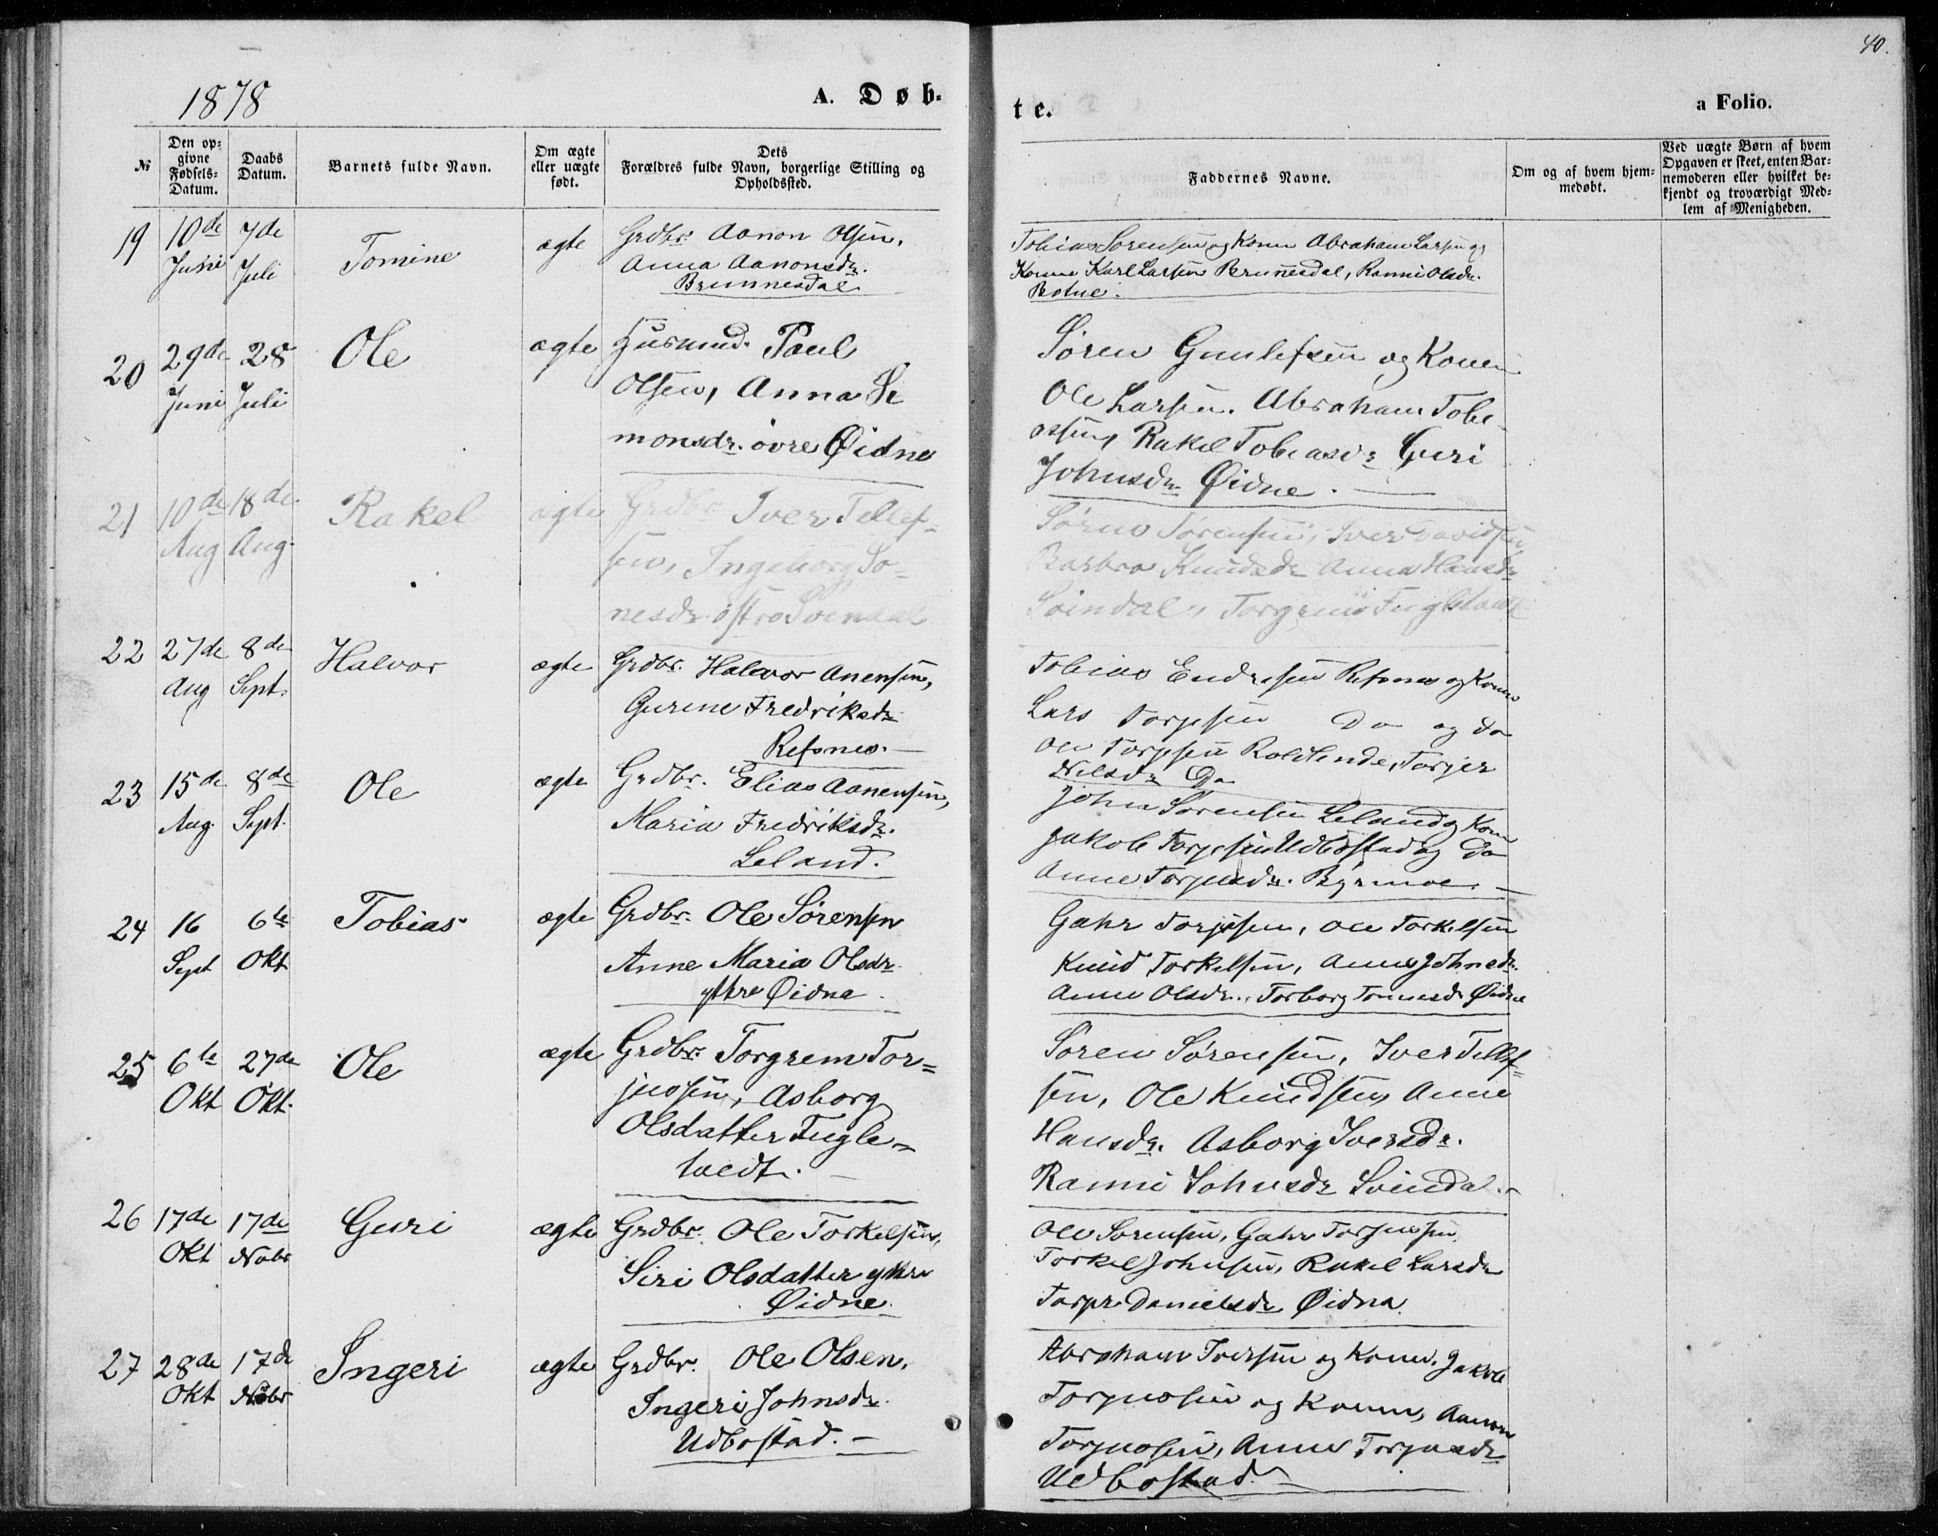 1878
A. Døb-
te.
a Folio.
40.
№
Den op-
givne
Fødsels-
Datum.
Daabs
Datum.
Barnets fulde Navn.
Om ægte
eller uægte
født.
Dets
Forældres fulde Navn, borgerlige Stilling og
Opholdssted.
Faddernes Navne.
Om og af hvem hjem-
medøbt.
Ved uægte Børn af hvem
Opgaven er skeet, enten Bar-
nemoderen eller hvilket be-
kjendt og troværdigt Med-
lem af Menigheden.
19
10de
Juni
7de
Juli
Tomine
ægte
Grdbr. Aanon Olsen,
Anna Aanonsdr.
Brunnesdal
Tobias Sørensen og Kone Abraham Larsen og
Kone Karl Larsen Brunnesdal, Ranni Olsdr.
20
29de
Juni
28
Juli
Ole
ægte
Husmd. Paul
Olsen, Anna Si
monsdr. øvre Øidne
Søren Gunlefsen og Kone
Ole Larsen. Abraham Tobi
assen, Rakel Tobiasdr Guri
Johnsdr. Øidne.
21
10de
Aug
18de
Aug.
Rakel
ægte
Grdbr. Iver Tellef-
sen, Ingeborg So-
nesdr. østre Svindal
Søren Sørensen, Iver Davidsen
Barbro Knudsdr Anna Hansdr
Svindal, Torgrim Fugltvedt
22
27de
Aug
8de
Sept.
Halvor
ægte
Grdbr. Halvor Anensen,
Gurine Fredriksdr.
Refsnes.
Tobias Endresen Refsnes og Kone
Lars Torjesen Do og do
Ole Torjesen Rolilende, Torjer
Nilsdr Do
23
15de
Aug.
8de
Sept.
Ole
ægte
Grdbr. Elias Aanensen,
Maria Fredriksdr.
Leland.
John Sørensen Leland og Kone
Jakob Torjesen Udbøstad og Do
Anne Torjusdr. Byrmoe.
24
16
Sept
6te
Okt
Tobias
ægte
Grdbr. Ole Sørensen
Anne Maria Olsdr.
ytre Øidna.
Gahr Torjesen, Ole Torkelsen
Knud Torkelsen, Anne Johnsdr.
Anne Olsdr., Torborg Tonnesdr Øidne
25
6te
Okt
27de
Okt.
Ole
ægte
Grdbr. Torgrem Tor-
jussen, Asborg
Olsdatter Fugle-
tvedt.
Søren Sørensen, Iver Tellef-
sen, Ole Knudsen, Anne
Hansdr. Asborg Iversdr.
Ranni Johnsdr Svindal.
26
17de
Okt
17de
Nobr
Guri
ægte
Grdbr. Ole Torkelsen,
Siri Olsdatter ytre
Øidne.
Ole Sørensen, Gahr Torjussen,
Torkel Johnsen, Rakel Larsdr
Danielsdr Øidna.
27
28de
Okt
17de
Nobr
Ingeri
ægte
Grdbr. Ole Olsen,
Ingeri Johnsdr.
Udbøstad.
Abraham Iversen og Kone, Jakob
Torjussen og Kone, Aanon
Torjussen, Anne Torjusdr
Udbøstad.